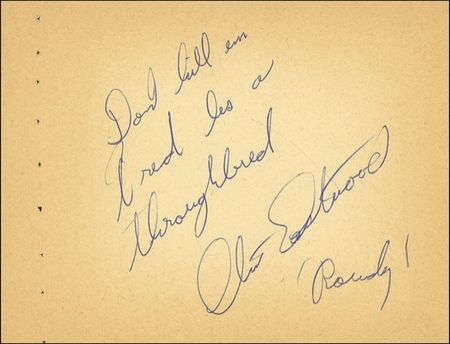 Don't kill em
Fred hes a
throughbred
Clint Eastwood
'Rowdy'